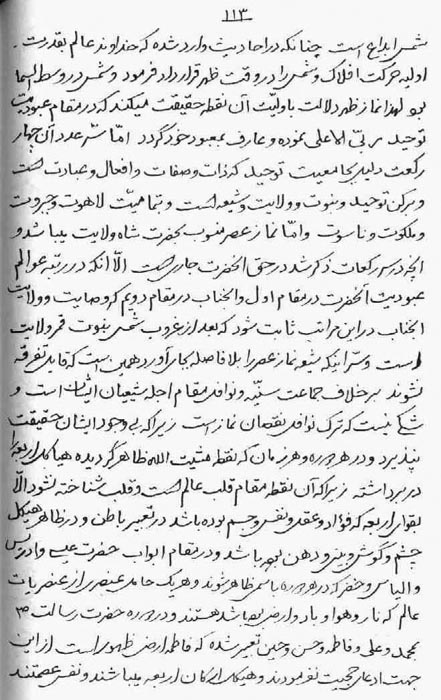 ۱۱۳
شمس ابداع است چنانکه در احادیث وارد شده که خداوند عالم بقدرت
اولیه حرکت افلاک و شمس را در وقت ظهر قرارداد فرمود و شمس در وسط السما
بود لهذا نماز ظهر دلالت باولیّت آن نقطه حقیقت میکند که در مقام عبودیت
توحید ربّی الاعلی نموده و عارف بمعبود خود گردد امّا سرّ عدد آن چهار
رکعت دلیل بجامعیت توحید که ذات و صفات و افعال و عبادت است
و برکن توحید و نبوت و ولایت و شیعه است و تمامیّت لاهوت و جبروت
و ملکوت و ناسوت و امّا نماز عصر منسوب بحضرت شاه ولایت میباشد و
آنچه در سر رکعات ذکر شد در حق آنحضرت جاری است الّا آنکه در رتبه عوالم
عبودیت آنحضرت در مقام اول و آنجناب در مقام دویم که وصایت و ولایت
آنجناب در این مراتب ثابت شود که بعد از غروب شمس نبوت قمر ولایت
است و سرّ اینکه شیعه نماز عصر را بلا فاصله بجا آورد همین است که قایل تفرقه
نشوند بر خلاف جماعت سنّیه و نوافل مقام اجله شیعیان ایشان است و
شکی نیست که ترک نوافل نقصان نماز است زیرا که بی وجود ایشان حقیقت
نپذیرد و در هر دوره و هر زمان که نقطه مشیت الله ظاهر گردیده هیاکل اربعه را
در بر داشته زیرا که آن نقطه مقام قلب عالم است و قلب شناخته نشود الّا
بقوای اربعه که فؤاد و عقل و نفس و جسم بوده باشد در تعبیر باطن و در ظاهر هیکل
چشم و گوش و بینی و دهن بوده باشد و در مقام ابواب حضرت عیسی و ادریس
و الیاس و خضر که در هر دوره باسمی ظاهر شوند و هر یک حامل عنصری از عنصریات
عالم که نار و هوا و باد و ارض بوده باشد هستند و در دوره حضرت رسالت ص
بمحمد و علی و فاطمه و حسن و حسین تعبیر شده که فاطمه ارض ظهور است از این
جهت ادعای حجیت نفرمودند و هیاکل ارکان اربعه میباشند و نفس عصمتند